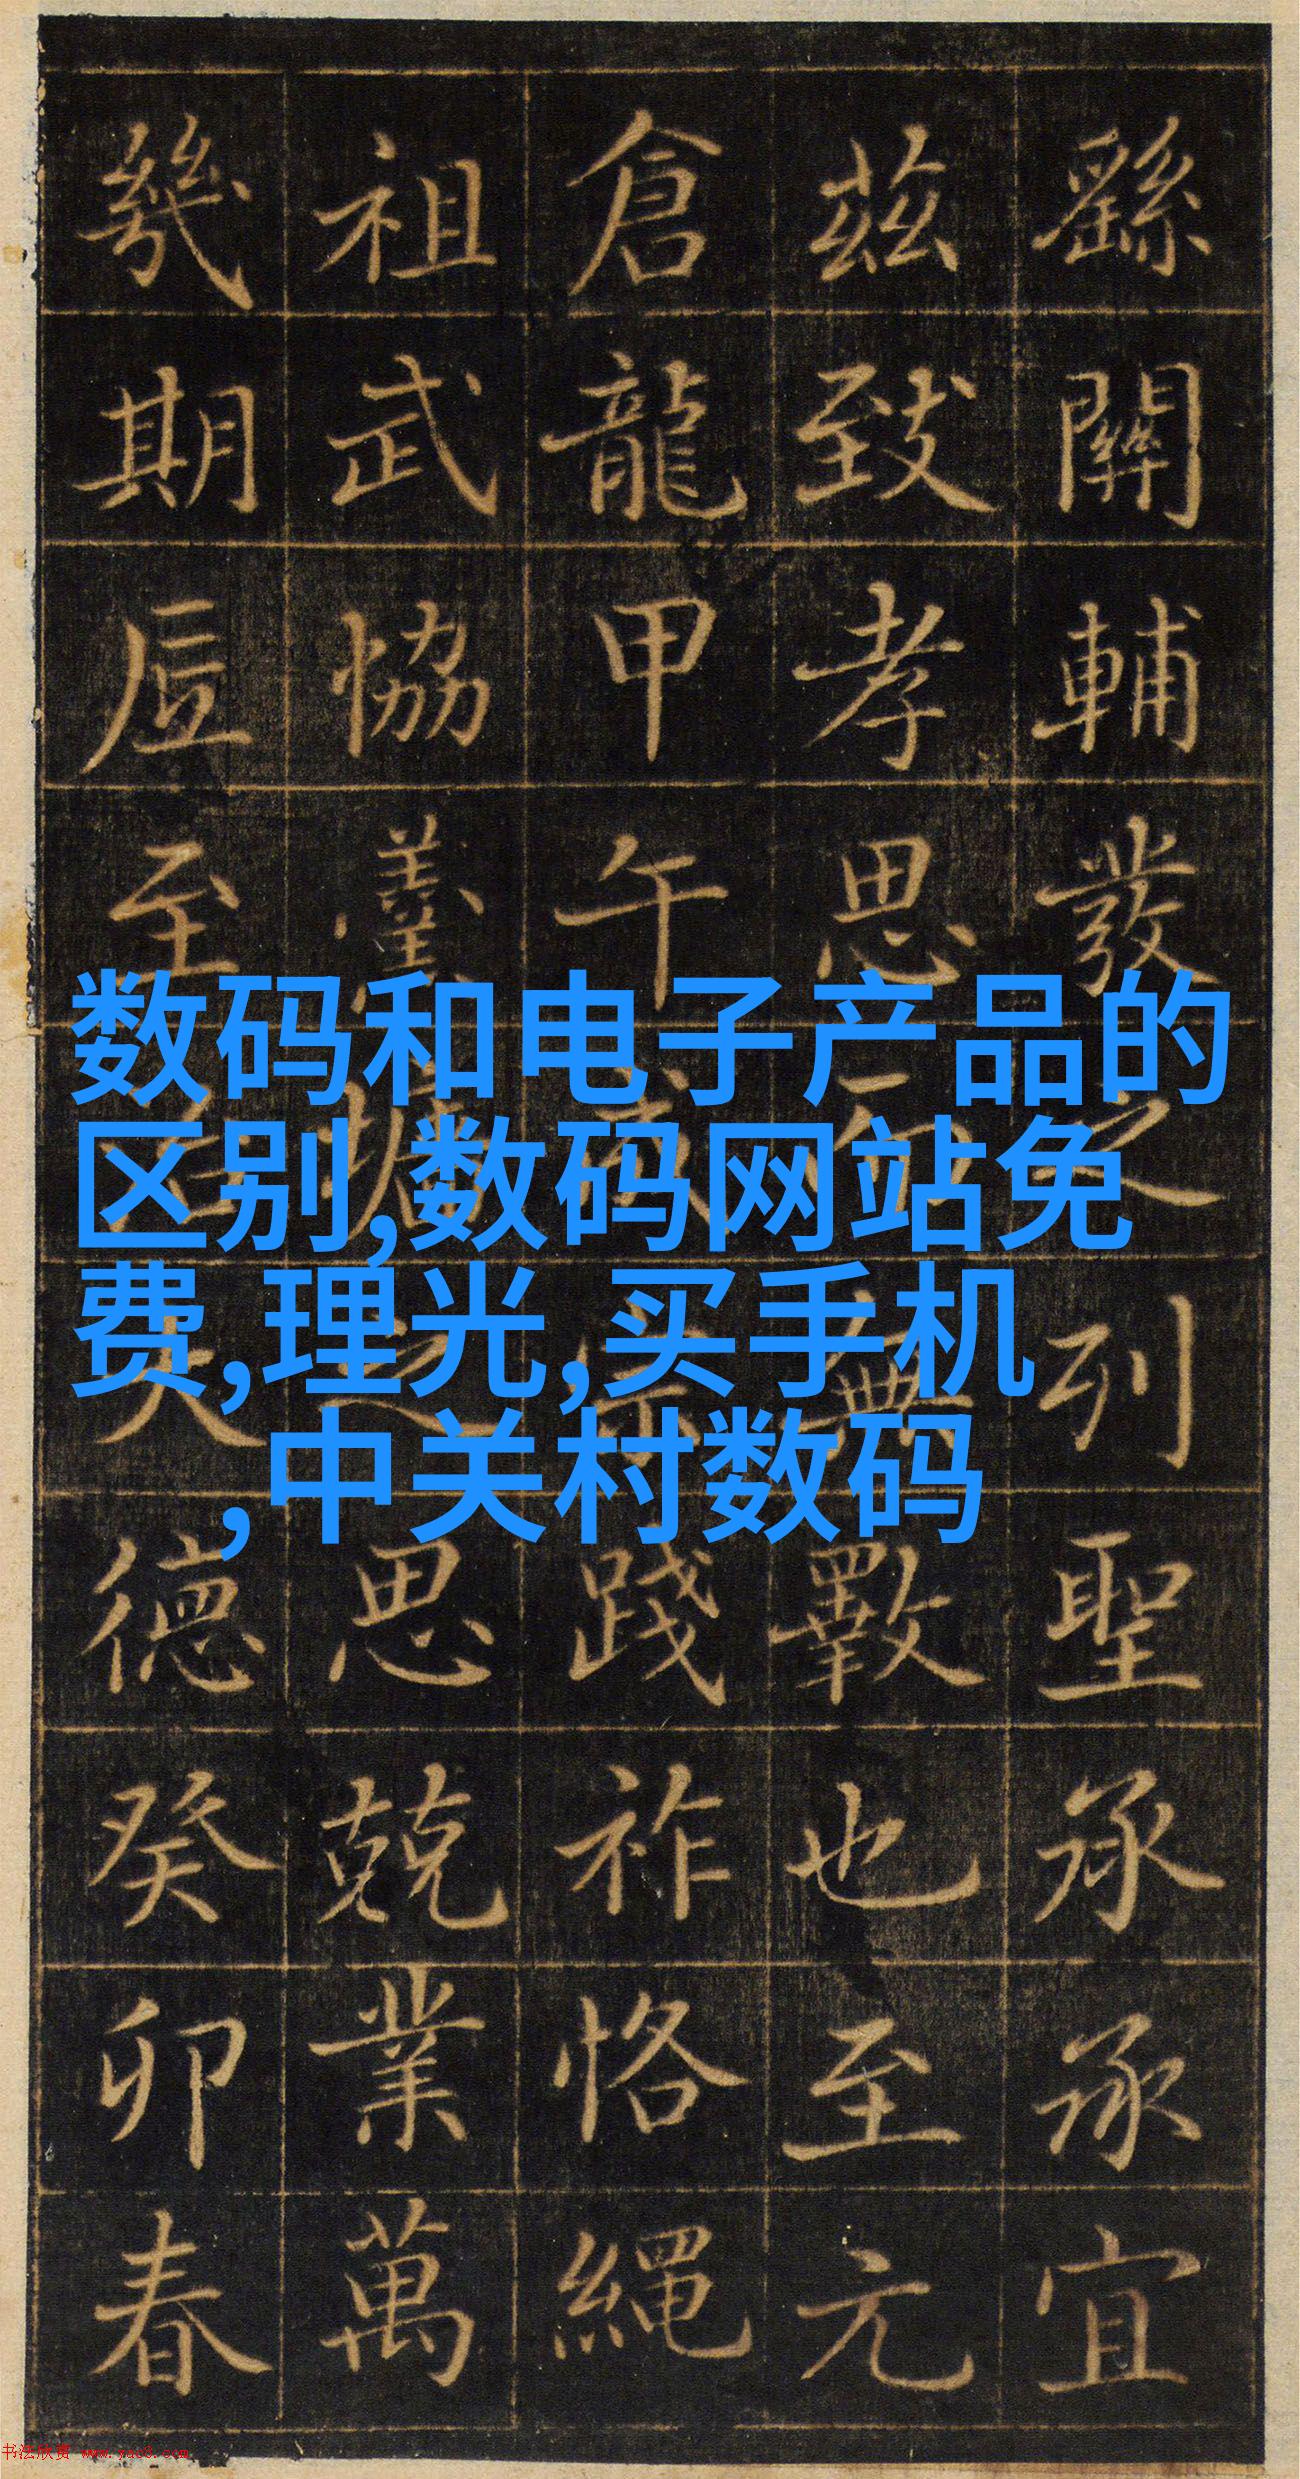 数码和电子产品的
区别,数码网站免
费,理光,买手机
,中关村数码
繇關輔發之列聖承承宜
茲致孝思無斁也至元
倉龍甲午成宗踐祚恪繩
祖武協羹牆之思兢業萬
幾期至治大德癸卯春
书法欣赏 www.yac8.com